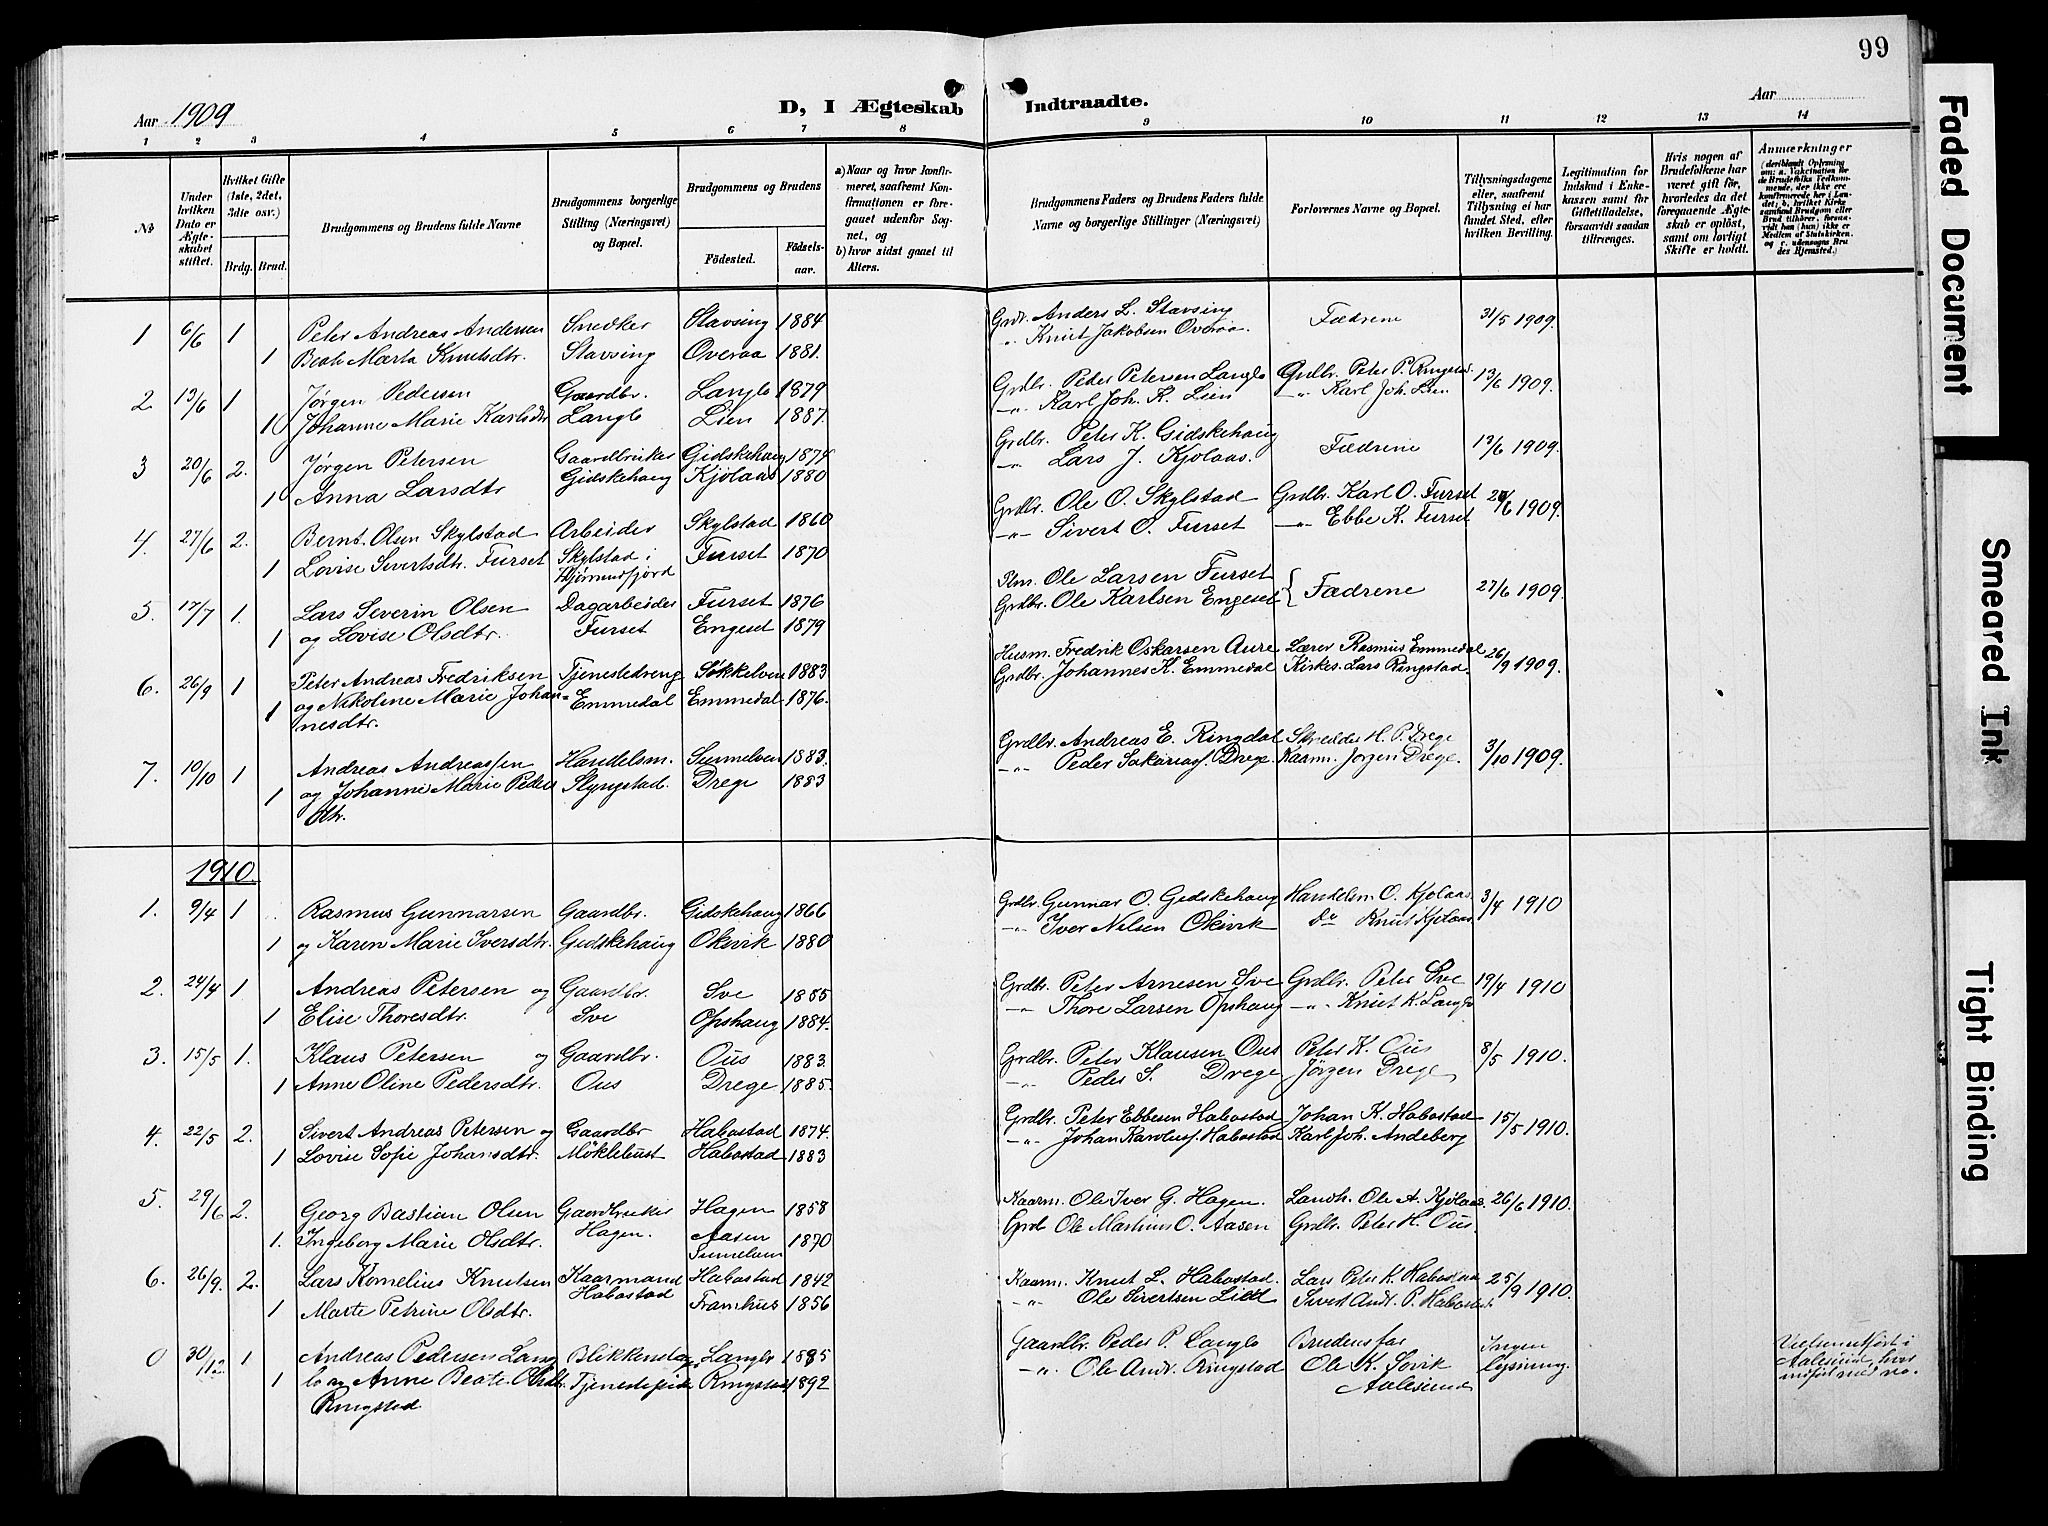 99
Aar 1909
D, I Ægteskab Indtraadte.
Aar
1 2 3 4 5 6 7 8 9 10 11 12 13 14
No
Under hvilken Dato er Ægteskabet stiftet.
Hvilket Gifte (1ste, 2det, 3die osv.)
Brdg. Brud.
Brudgommens og Brudens fulde Navne
Brudgommens borgerlige Stilling (Næringsvei) og Bopæl.
Brudgommens og Brudens
Fødested.
Fødselsaar.
a) Naar og hvor konfirmeret, saafremt Konfirmationen er foregaaet udenfor Sognet, og
b) hvor sidst gaaet til Alters.
Brudgommens Faders og Brudens Faders fulde Navne og borgerlige Stillinger (Næringsvei)
Forlovernes Navne og Bopæl.
Tillysningsdagene eller, saafremt Tillysning ei har fundet Sted, efter hvilken Bevilling.
Legitimation for Indskud i Enkekassen samt for Giftetilladelse, forsaavidt saadan tiltrænges.
Hvis nogen af Brudefolkene har været gift før, hvorledes da det foregaaende Ægteskab er opløst, samt om lovligt Skifte er holdt.
Anmærkninger
(deriblandt Oplysning om: a. Vakcination for de Brudefolks Vedkommende, der ikke ere konfirmerede her i Landet; b. hvilket Kirkesamfund Brudgom eller Brud tilhører, forsaavidt han (hun) ikke er Medlem af Statskirken, og c. udensogns Brudes Hjemsted.)
1 6/6 1 Peter Andreas Andersen Snedker Stavsing 1884 Grdr. Anders L. Stavsing Fædrene 31/5 1909.
1 Beate Marta Knutsdtr. Stavsing Overaa 1881. " Knut Jakobsen Overaa.
2. 13/6 1 Jørgen Pedersen Gaardbr. Langlo 1879 Grdbr. Peder Petersen Langlo Grdbr. Peter P. Ringstad 13/6 1909.
1 Johanne Marie Karlsdtr Langlo Lien 1887. -"- Karl Joh. K. Lien -"- Karl Joh. Lien
3 20/6 2. Jørgen Petersen Gaardbruker Gidskehaug 1874 Grdbr. Peter K. Gidskehaug Fædrene 13/6 1909.
1 Anna Larsdtr Gidskehaug Kjølaas 1880 -"- Lars J. Kjølaas.
4. 27/6 2. Bernt Olsen Skylstad Arbeider Skylstad 1860 Grdbr. Ole O. Skylstad Grdbr. Karl O. Furset 20/6 1909.
1 Lovise Sivertsdtr. Furset Skylstad i Furset 1870 -"- Sivert O. Furset -"- Ebbe K. Furset
Hjørundfjord
5. 17/7 1. Lars Severin Olsen Dagarbeider Furset 1876 Plm. Ole Larsen Furset { Fædrene 27/6 1909.
1 og Lovise Olsdtr. Furset Engeset 1879 Grdbr. Ole Karlsen Engeset
6. 26/9 1 Peter Andreas Fredriksen Tjenestedreng Søkkelven 1883 Husm. Fredrik Oskarsen Aure Lærer Rasmus Emmedal 26/9 1909.
1 og Nikoline Marie Johan= Emmedal Emmedal 1876. Grdbr. Johannes K. Emmedal Kirkes. Lars Ringstad.
nesdtr.
7. 10/10 1 Andreas Andreassen Handelsm. Sunnelven 1883. Grdbr. Andreas E. Ringdal Skredder H. P. Drege 3/10 1909.
1 og Johanne Marie Peders Slyngstad. Drege 1883 -"- Peder Sakariass. Drege. Kaarm. Jørgen Drege.
dtr.
1910.
1. 9/4 1 Rasmus Gunnarsen Gaardbr. Gidskehaug 1866 Grdbr. Gunnar O. Gidskehaug Handelsm. O. Kjølaas 3/4 1910
1 og Karen Marie Iversdtr. Gidskehaug Okivik 1880 -"- Iver Nilsen Okivik Do Knut Kjølaas.
2. 24/4 1 Andreas Petersen og Gaardbr. Sve 1885 Grdbr. Peter Arnesen Sve Grdbr. Peter Sve 19/4 1910
1 Elise Thoresdtr. Sve Opshaug 1884. -"- Thore Larsen Opshaug -"- Knut K. Langlo
3. 15/5 1. Klaus Petersen og Gaardbr. Ous 1883 Grdbr. Peter Klausen Ous Peter K. Ous 8/5 1910.
1 Anne Oline Pedersdtr. Ous Drege 1885. -"- Peder S. Drege Jørgen Drege
4. 22/5 2. Sivert Andreas Petersen og Gaardbr Habostad 1874. Grdbr. Peter Ebbesen Habostad Johan K. Habostad 15/5 1910.
1 Lovise Sofie Johansdtr. Møklebust Habostad 1883 -"- Johan Karoluss. Habostad Karl Joh. Andeberg
5. 29/6 2. Georg Bastian Olsen Gaardbruker Hagen 1858 Kaarm. Ole Iver G. Hagen. Landh. Ole A. Kjølaas 26/6 1910.
1. Ingeborg Marie Olsdtr. Hagen. Aasen 1870 Grdr Ole Martinus O. Aasen Grdbr. Peter H. Ous.
Sunnelven
6. 26/9. 2. Lars Kornelius Knutsen Kaarmand Habostad 1842 Kaarm. Knut L. Habostad. Lars Peter K. Habostad 25/9 1910.
1 Marte Petrine Olsdtr. Habostad Framhus 1856 -"- Ole Sivertsen Lied Sivert Andr. P. Habostad
0 30/12 1 Andreas Pedersen Lang Blikkenslag. Langlo 1885 Gaardbr. Peder P. Langlo Brudens far Ingen
1 lo og Anne Beate Olsdtr. Tjenestepike Ringstad 1892 -"- Ole Andr. Ringstad Ole K. Sovik lysning.
Ringstad Aalesund
Vielsen utført i
Aalesund, hvor
indført med no.
Faded Document
Smeared Ink
Tight Binding